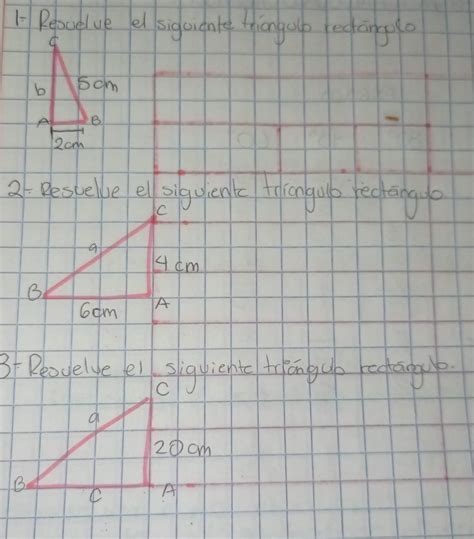 1- Resuelve el siguiente triángulo rectángulo
C
b 5cm
A B
2cm
2- Resuelve el siguiente triángulo rectánguo
C
a
4cm
B
6cm A
3- Resuelve el siguiente triángulo rectángulo.
C
a
20cm
B
C A